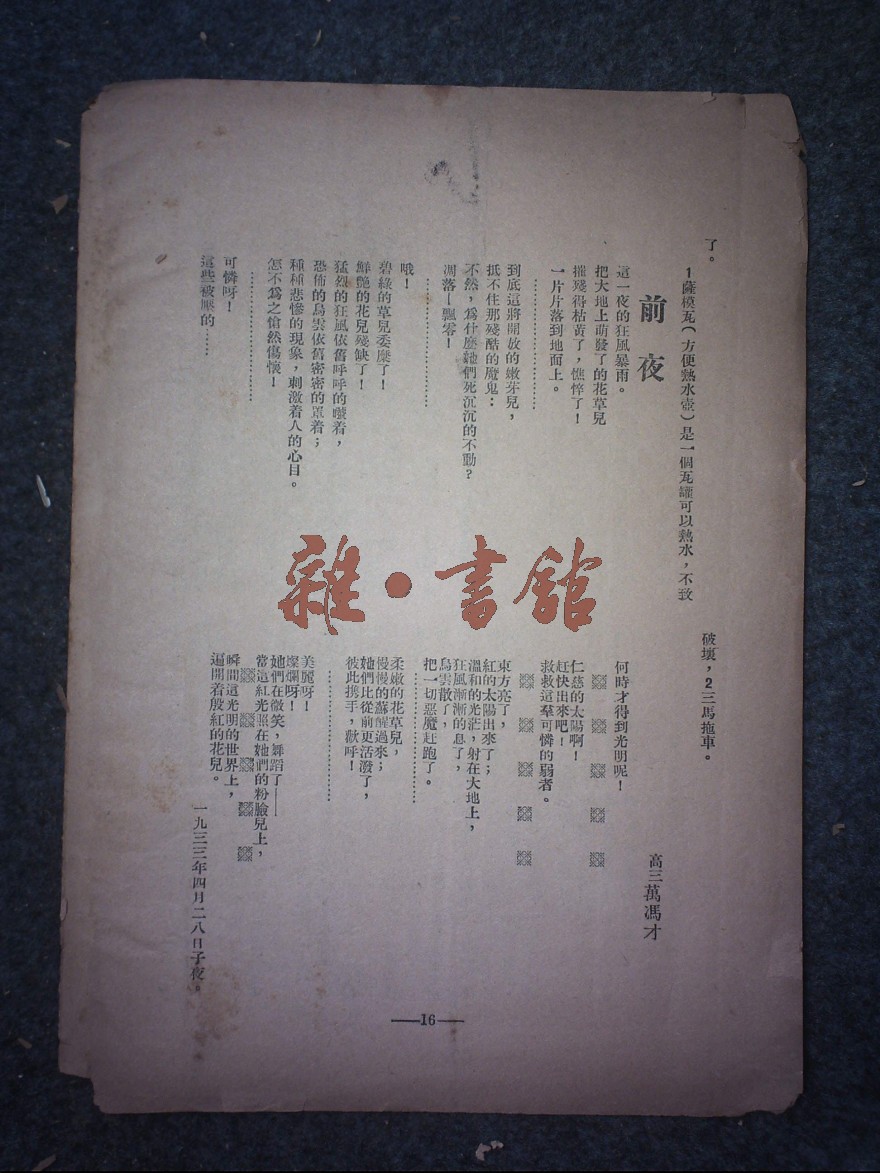 了。
1薩模瓦(方便熱水壺)是一個瓦罐可以熱水，不致
破壞，2三馬拖車。
前夜
高三萬馮才
這一夜的狂風暴雨。
把大地上萌發了的花草兒
摧殘得枯黃了，憔悴了！
一片片落到地面上。
…………………
到底這將開放的嫩芽兒，
抵不住那殘酷的魔鬼：
不然，爲什麼她們死沉沉的不動？
凋落—飄零！
…………………
哦！
碧綠的草兒委糜了！
鮮艷的花兒殘缺了！
猛烈的狂風依舊呼呼的嘯着，
恐佈的烏雲依舊密密的罩着；
種種悲慘的現象，刺激着人的心目。
怎不爲之愴然傷懷！
…………………
可憐呀！
這些被壓的……
何時才得到光明呢！
仁慈的太陽啊！
赶快出來吧！
救救這羣可憐的弱者。
東方亮了，
紅的太陽出來了；
溫和的光茫，射在大地上，
狂風漸漸的息了，
烏雲散了，
把一切惡魔赶跑了。
…………………
柔嫩的花草兒，
慢慢的蘇醒過來；
她們比從前更活潑了，
彼此携手，歡呼！
…………………
美麗呀！
燦爛呀！
她們在微笑，舞蹈了——
當這紅光照在她們的粉臉兒上，
瞬間這光明的世界上，
逼開着殷紅的花兒。
一九三三年四月二八日子夜。
—16—
雜·書館